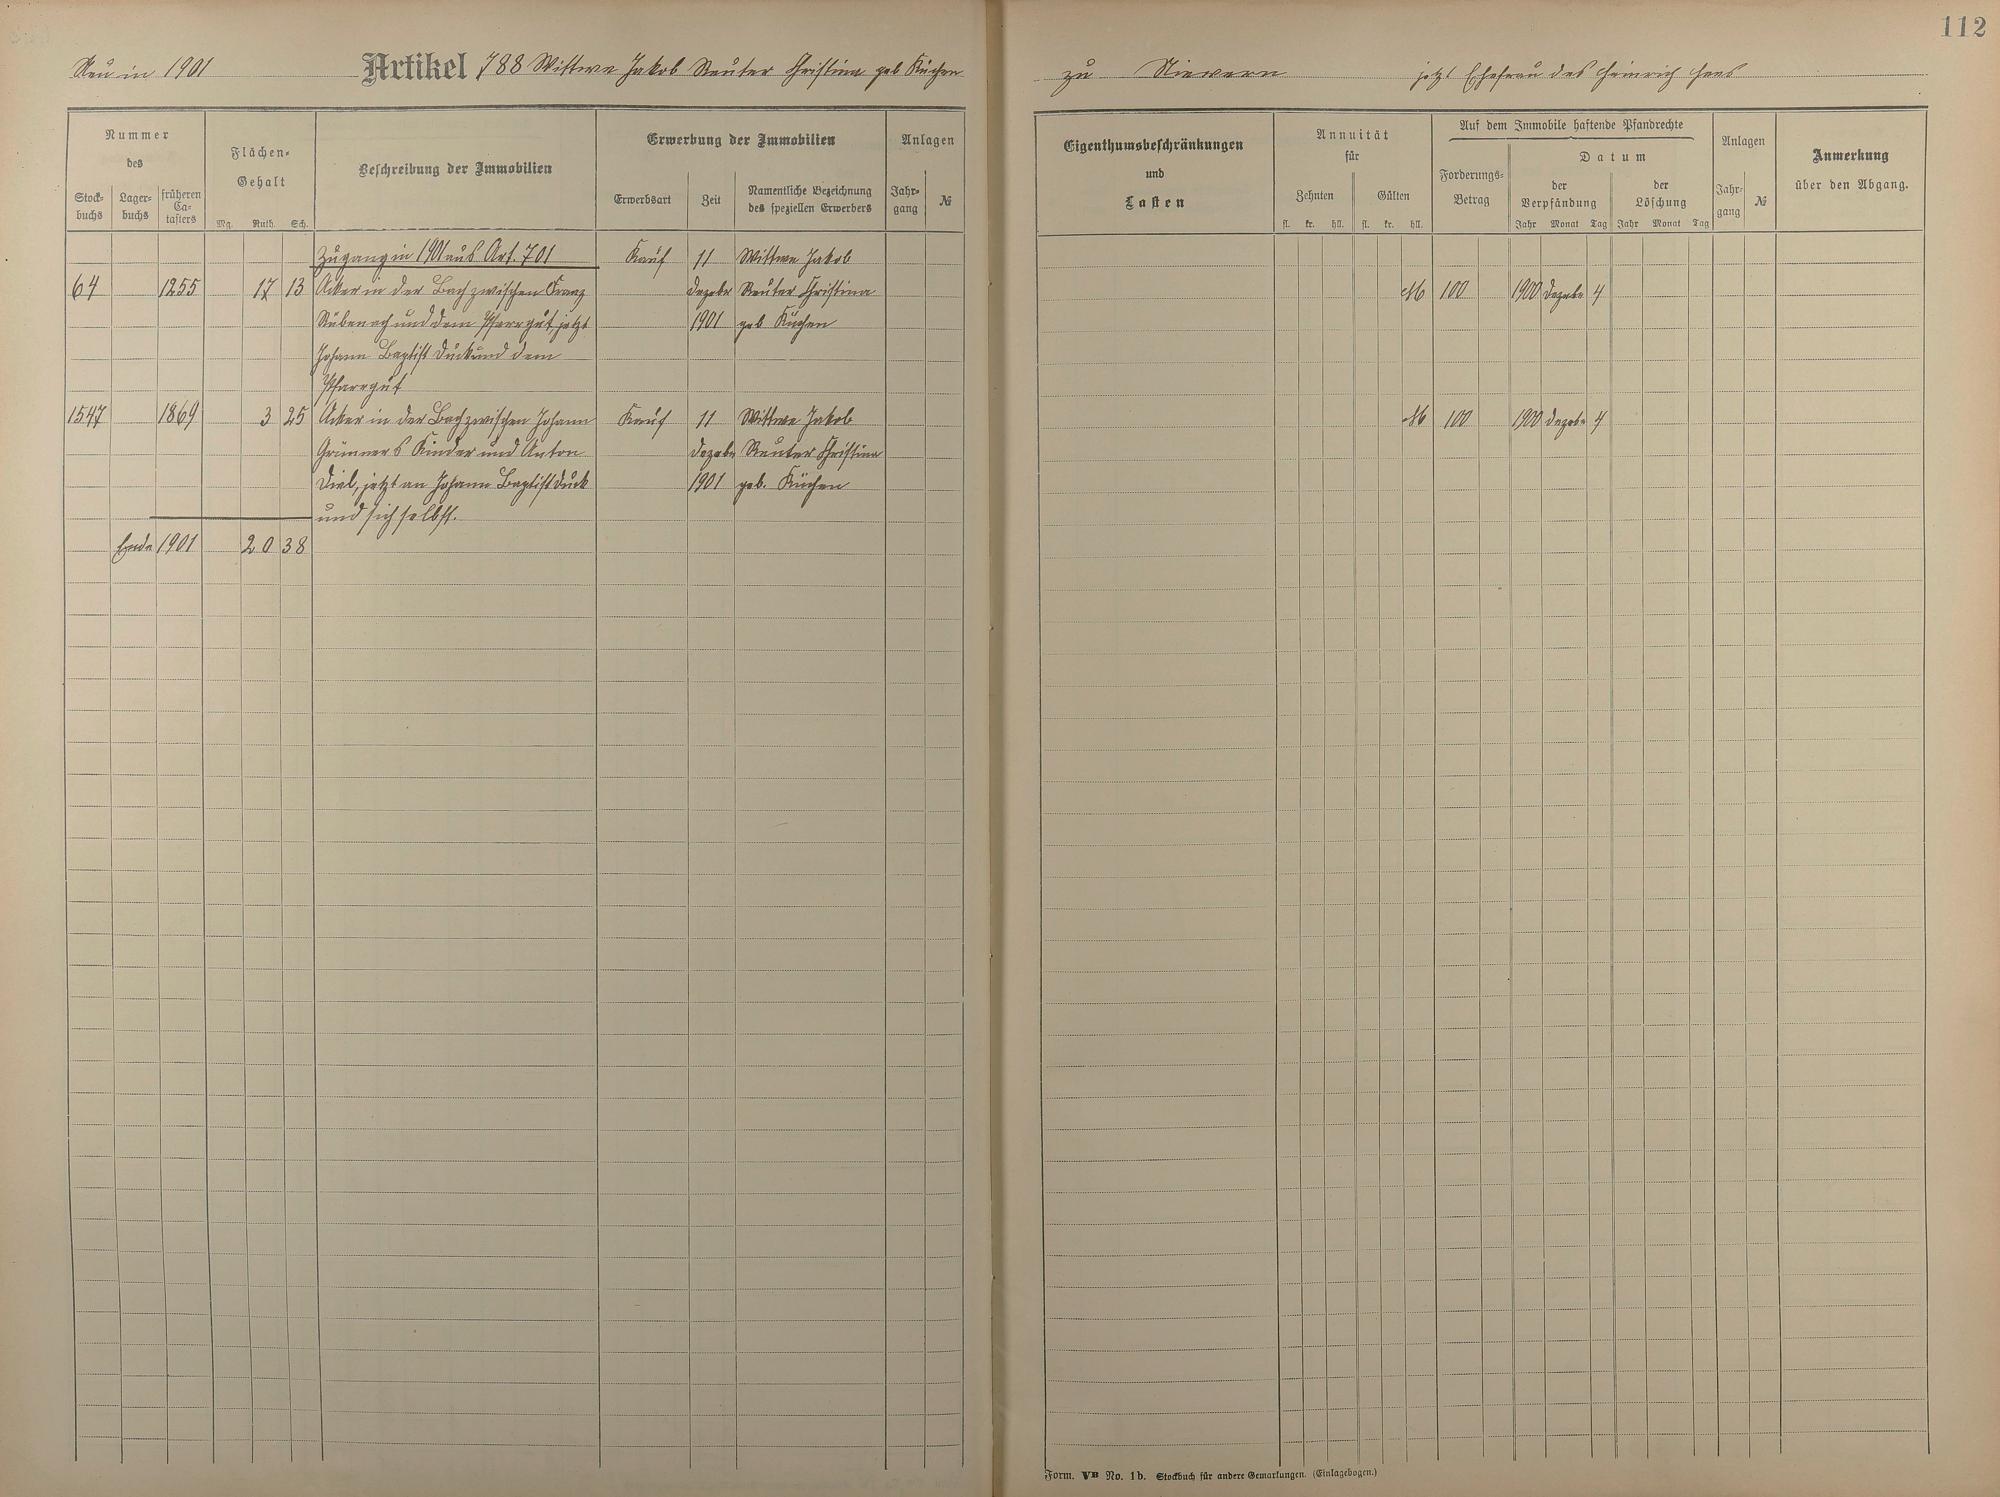 112
Neu in 1901 Artikel 788 Wittwe Jakob Reuter Christina geb Küchen
zu Nievern jetzt Ehefrau des Heinrich Hees
Nummer
des
Stock-
buchs
Lager-
buchs
früheren
Ca-
tasters
Flächen-
Gehalt
Mg. Ruth. Sch.
Beschreibung der Immobilien
Erwerbung der Immobilien
Erwerbsart
Zeit
Namentliche Bezeichnung
des speziellen Erwerbers
Anlagen
Jahr-
gang
№
Eigenthumsbeschränkungen
und
Lasten
Annuität
für
Zehnten
fl. kr. hll.
Gülten
fl. kr. hll.
Auf dem Immobile haftende Pfandrechte
Forderungs-
Betrag
Datum
der
Verpfändung
Jahr Monat Tag
der
Löschung
Jahr Monat Tag
Anlagen
Jahr-
gang
№
Anmerkung
über den Abgang.
Zugang in 1901 aus Art. 701 Kauf 11 Wittwe Jakob
64 1255 17 13 Acker in der Bach zwischen Franz Dezebr Reuter Christina M 100 1900 Dezebr 4
Rübenach und dem Pfarrgut, jetzt 1901 geb Küchen
Johann Baptist Duck und dem
Pfarrgut
1547 1869 3 25 Acker in der Bach zwischen Johann Kauf 11 Wittwe Jakob M 100 1900 Dezebr 4
Kinder und Anton Dezebr Reuter Christina
Diel, jetzt an Johann Baptist Duck 1901 geb. Küchen
und sich selbst.
Ende 1901 20 38
Form. VB No. 1b. Stockbuch für andere Gemarkungen. (Einlagebogen.)